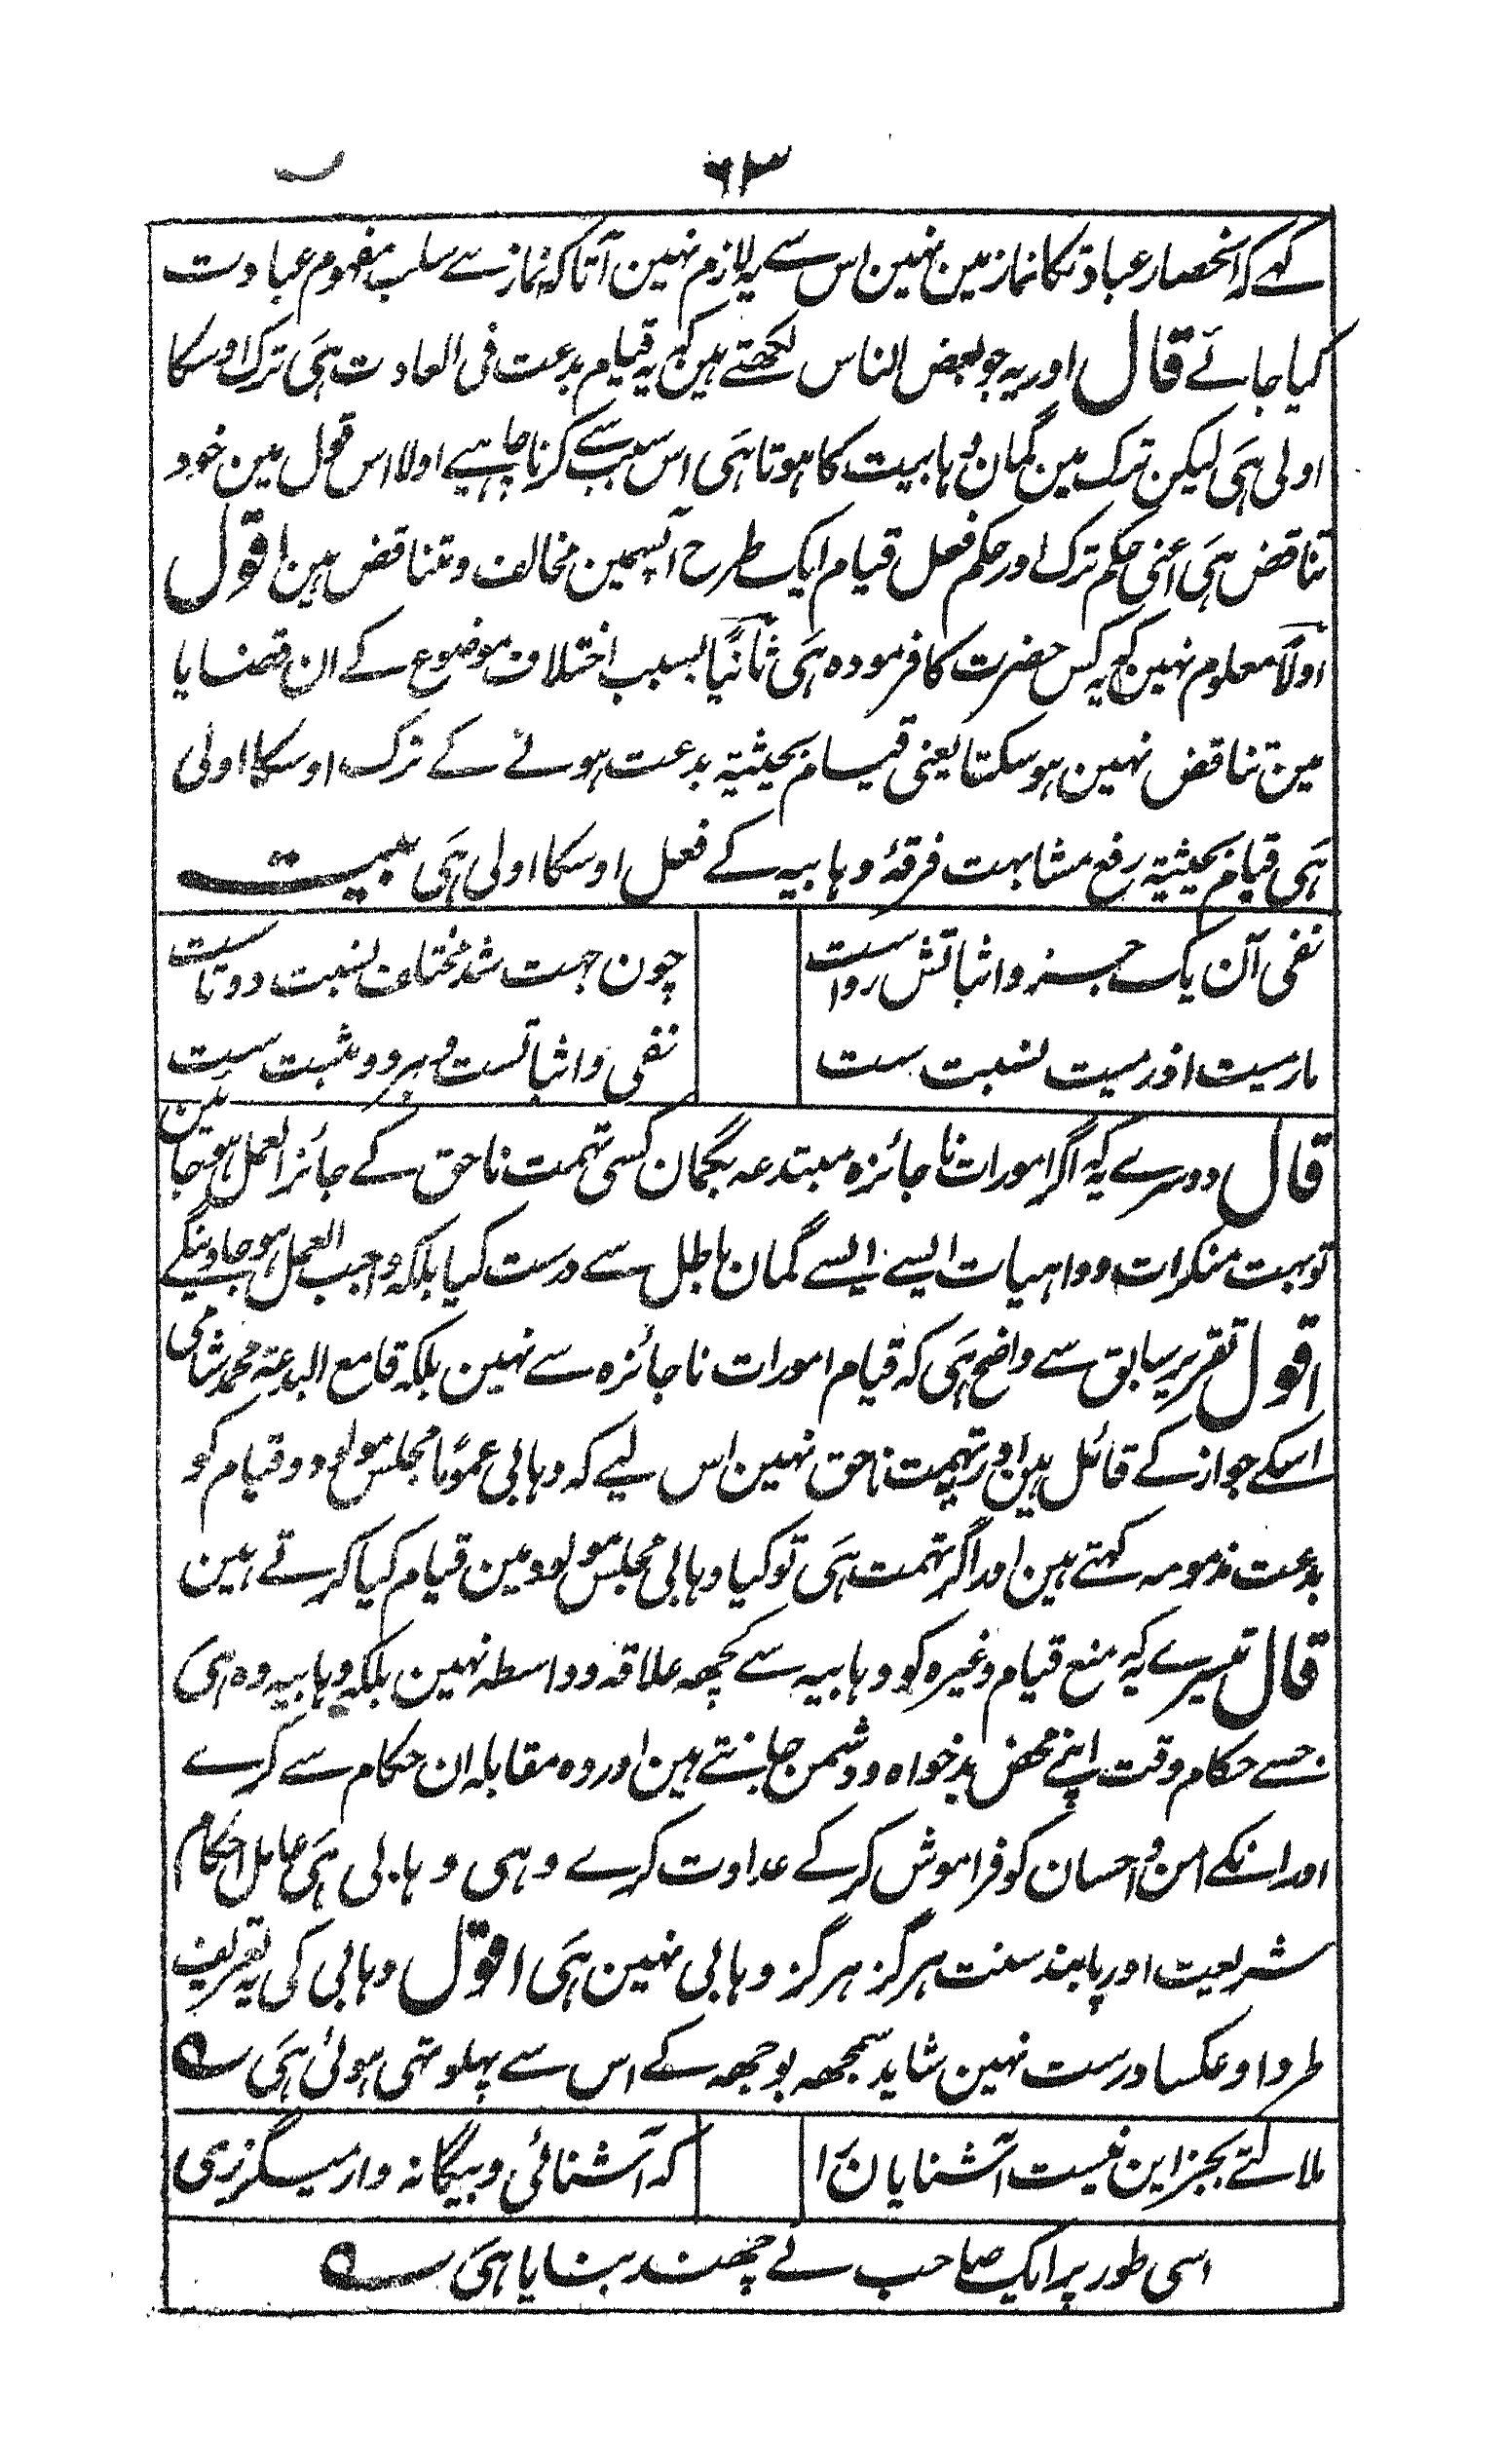 ۶۳
کہے کہ انحصار عبادتکا نماز مین نہین اس سے یہ لازم نہین آتا کہ نماز سے سلب مفہوم عبادت
کیا جائے قال اور یہ جو بعض الناس لکھتے ہین کہ یہ قیام بدعت فی العادت ہَی ترک اوسکا
اولی ہَی لیکن ترک مین گمان وہابیت کا ہوتا ہَی اس سبب سے کرنا چاہیے اولا اس قول مین خود
تناقض ہَی اعنی حکم ترک اور حکم فعل قیام ایک طرح آپسمین مخالف و متناقض ہین اقول
اولاً معلوم نہین کہ یہ کس حضرت کا فرمودہ ہَی ثانیًا بسبب اختلاف موضوع کے ان قضایا
مین تناقض نہین ہو سکتا یعنی قیام بحیثیۃ بدعت ہونے کے ترک اوسکا اولی
ہَی قیام بحیثیۃ رفع مشابہت فرقۂ وہابیہ کے فعل اوسکا اولی ہَی بیت
نفی آن یک چیز و اثباتش رواست چون جہت شد مختلف نسبت دوتاست
مارمیت اذ رمیت نسبت ست نفی و اثباتست و ہر دو مثبت ست
قال دوسرے یہ کہ اگر امورات نا جائزہ مبتدعہ بگمان کسی تہمت ناحق کے جائز العمل ہو جاین
تو بہت منکرات و واہیات ایسے ایسے گمان باطل سے درست کیا بلکہ واجب العمل ہو جاوینگے
اقول تقریر سابق سے واضح ہَی کہ قیام امورات نا جائزہ سے نہین بلکہ قامع البدعۃ محمد شامی
اسکے جواز کے قائل ہین اور یہ تہمت ناحق نہین اس لیے کہ وہابی عمومًا مجلس مولود و قیام کو
بدعت مذمومہ کہتے ہین اور اگر تہمت ہَی تو کیا وہابی مجلس مولود مین قیام کیا کرتے ہین
قال تیسرے یہ کہ منع قیام وغیرہ کو وہابیہ سے کچھہ علاقہ و واسطہ نہین بلکہ وہابیہ وہ ہَی
جسے حکام وقت اپنے محض بدخواہ و دشمن جانتے ہین اور وہ مقابلہ ان حکام سے کرے
اور انکے امن و احسان کو فراموش کر کے عداوت کرے وہی وہابی ہَی عامل احکام
شریعت اور پابند سنت ہرگز ہرگز وہابی نہین ہَی اقول وہابی کی یہ تعریف
طردا و عکسا درست نہین شاید سمجھہ بوجھہ کے اس سے پہلو تہی ہوئی ہَی
ملالتے بجز این نیست آشنایان را کہ آشنائی و بیگانہ وار میگزری
اسی طور پر ایک صاحب نے چھند بنایا ہَی